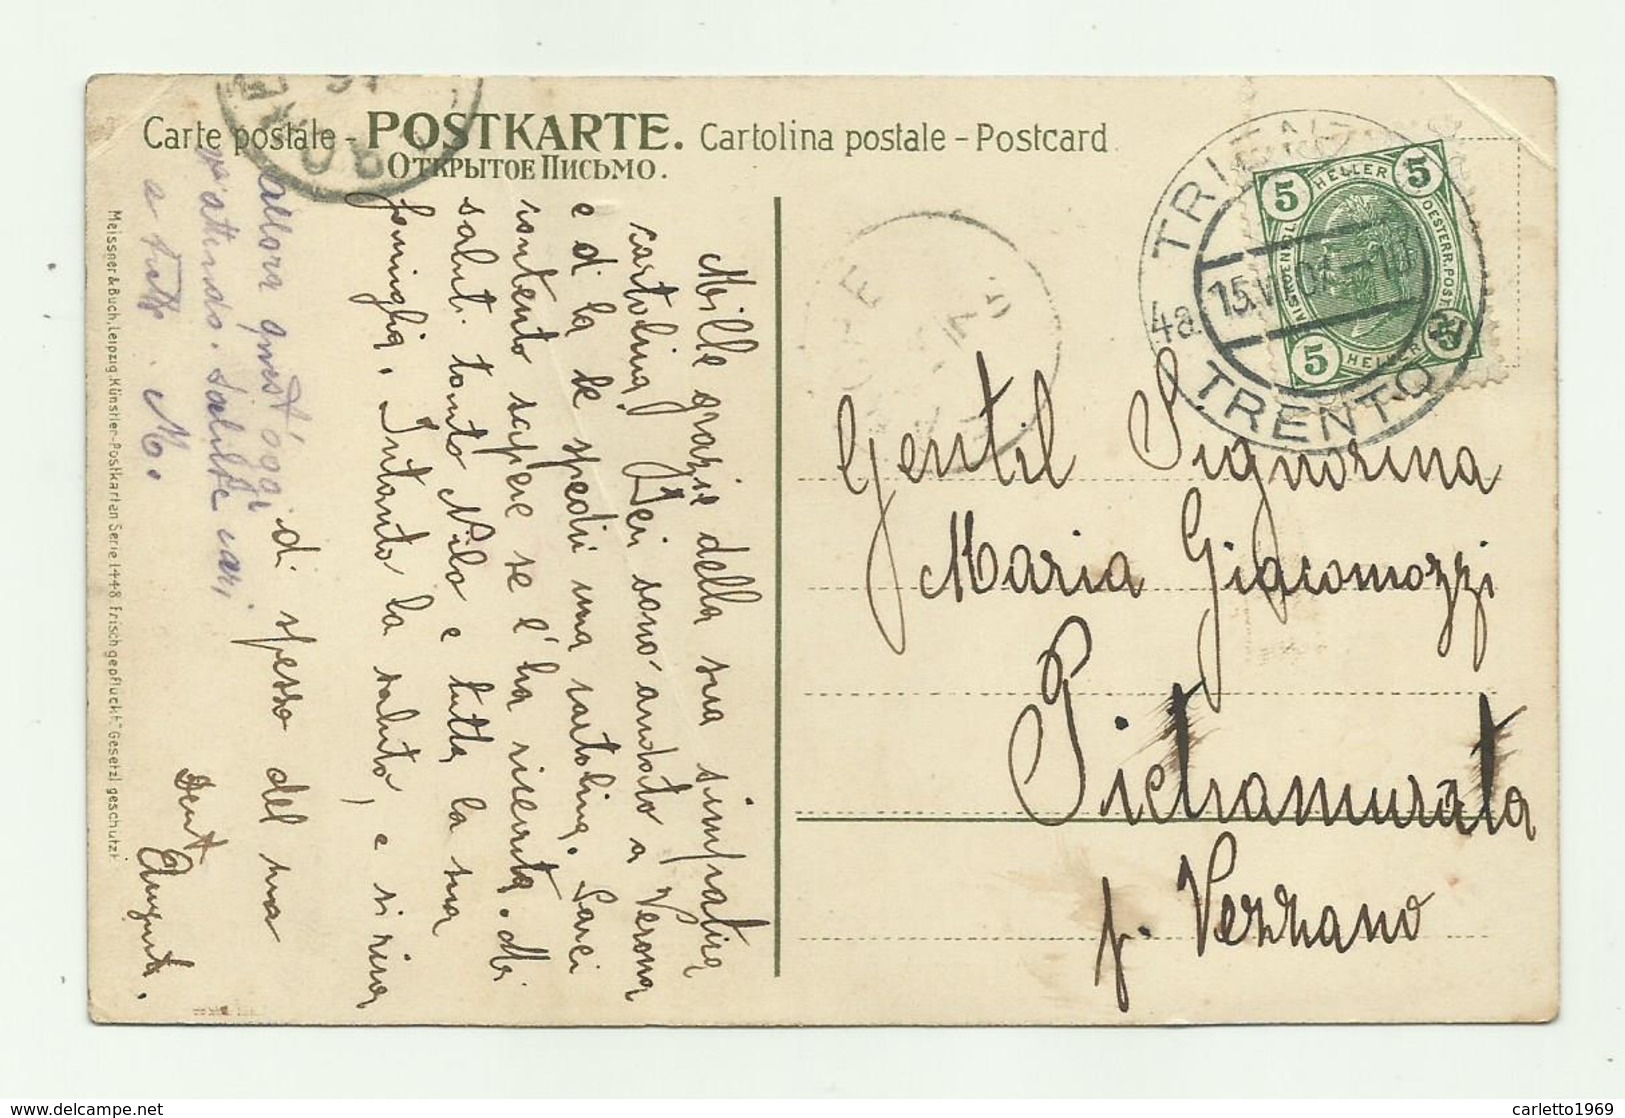 Carte postale - POSTKARTE. Cartolina postale - Postcard
ОТКРЫТОЕ ПИСЬМО.
Meissner & Buch, Leipzig. Künstler-Postkarten Serie 1448 „Frisch gepflückt" Gesetzl. geschützt
Mille grazie della sua simpatica
cartolina. Ieri sono andato a Verona
e di la le spedii una cartolina. Sarei
contento sapere se l'ha ricevuta. Mi
saluti tanto Nilo e tutta la sua
famiglia. Intanto la saluto, e si
di spesso del suo
Augusto.
allora quest'oggi
vi attendo. Saluti cari
a tutti. M.
Gentil Signorina
Maria Giacomozzi
Pietramurata
p. Vezzano
TRIENT
4a
15.VI
TRENTO
5 HELLER 5
OESTERR. POST.
5 HELLER 5
carletto1969